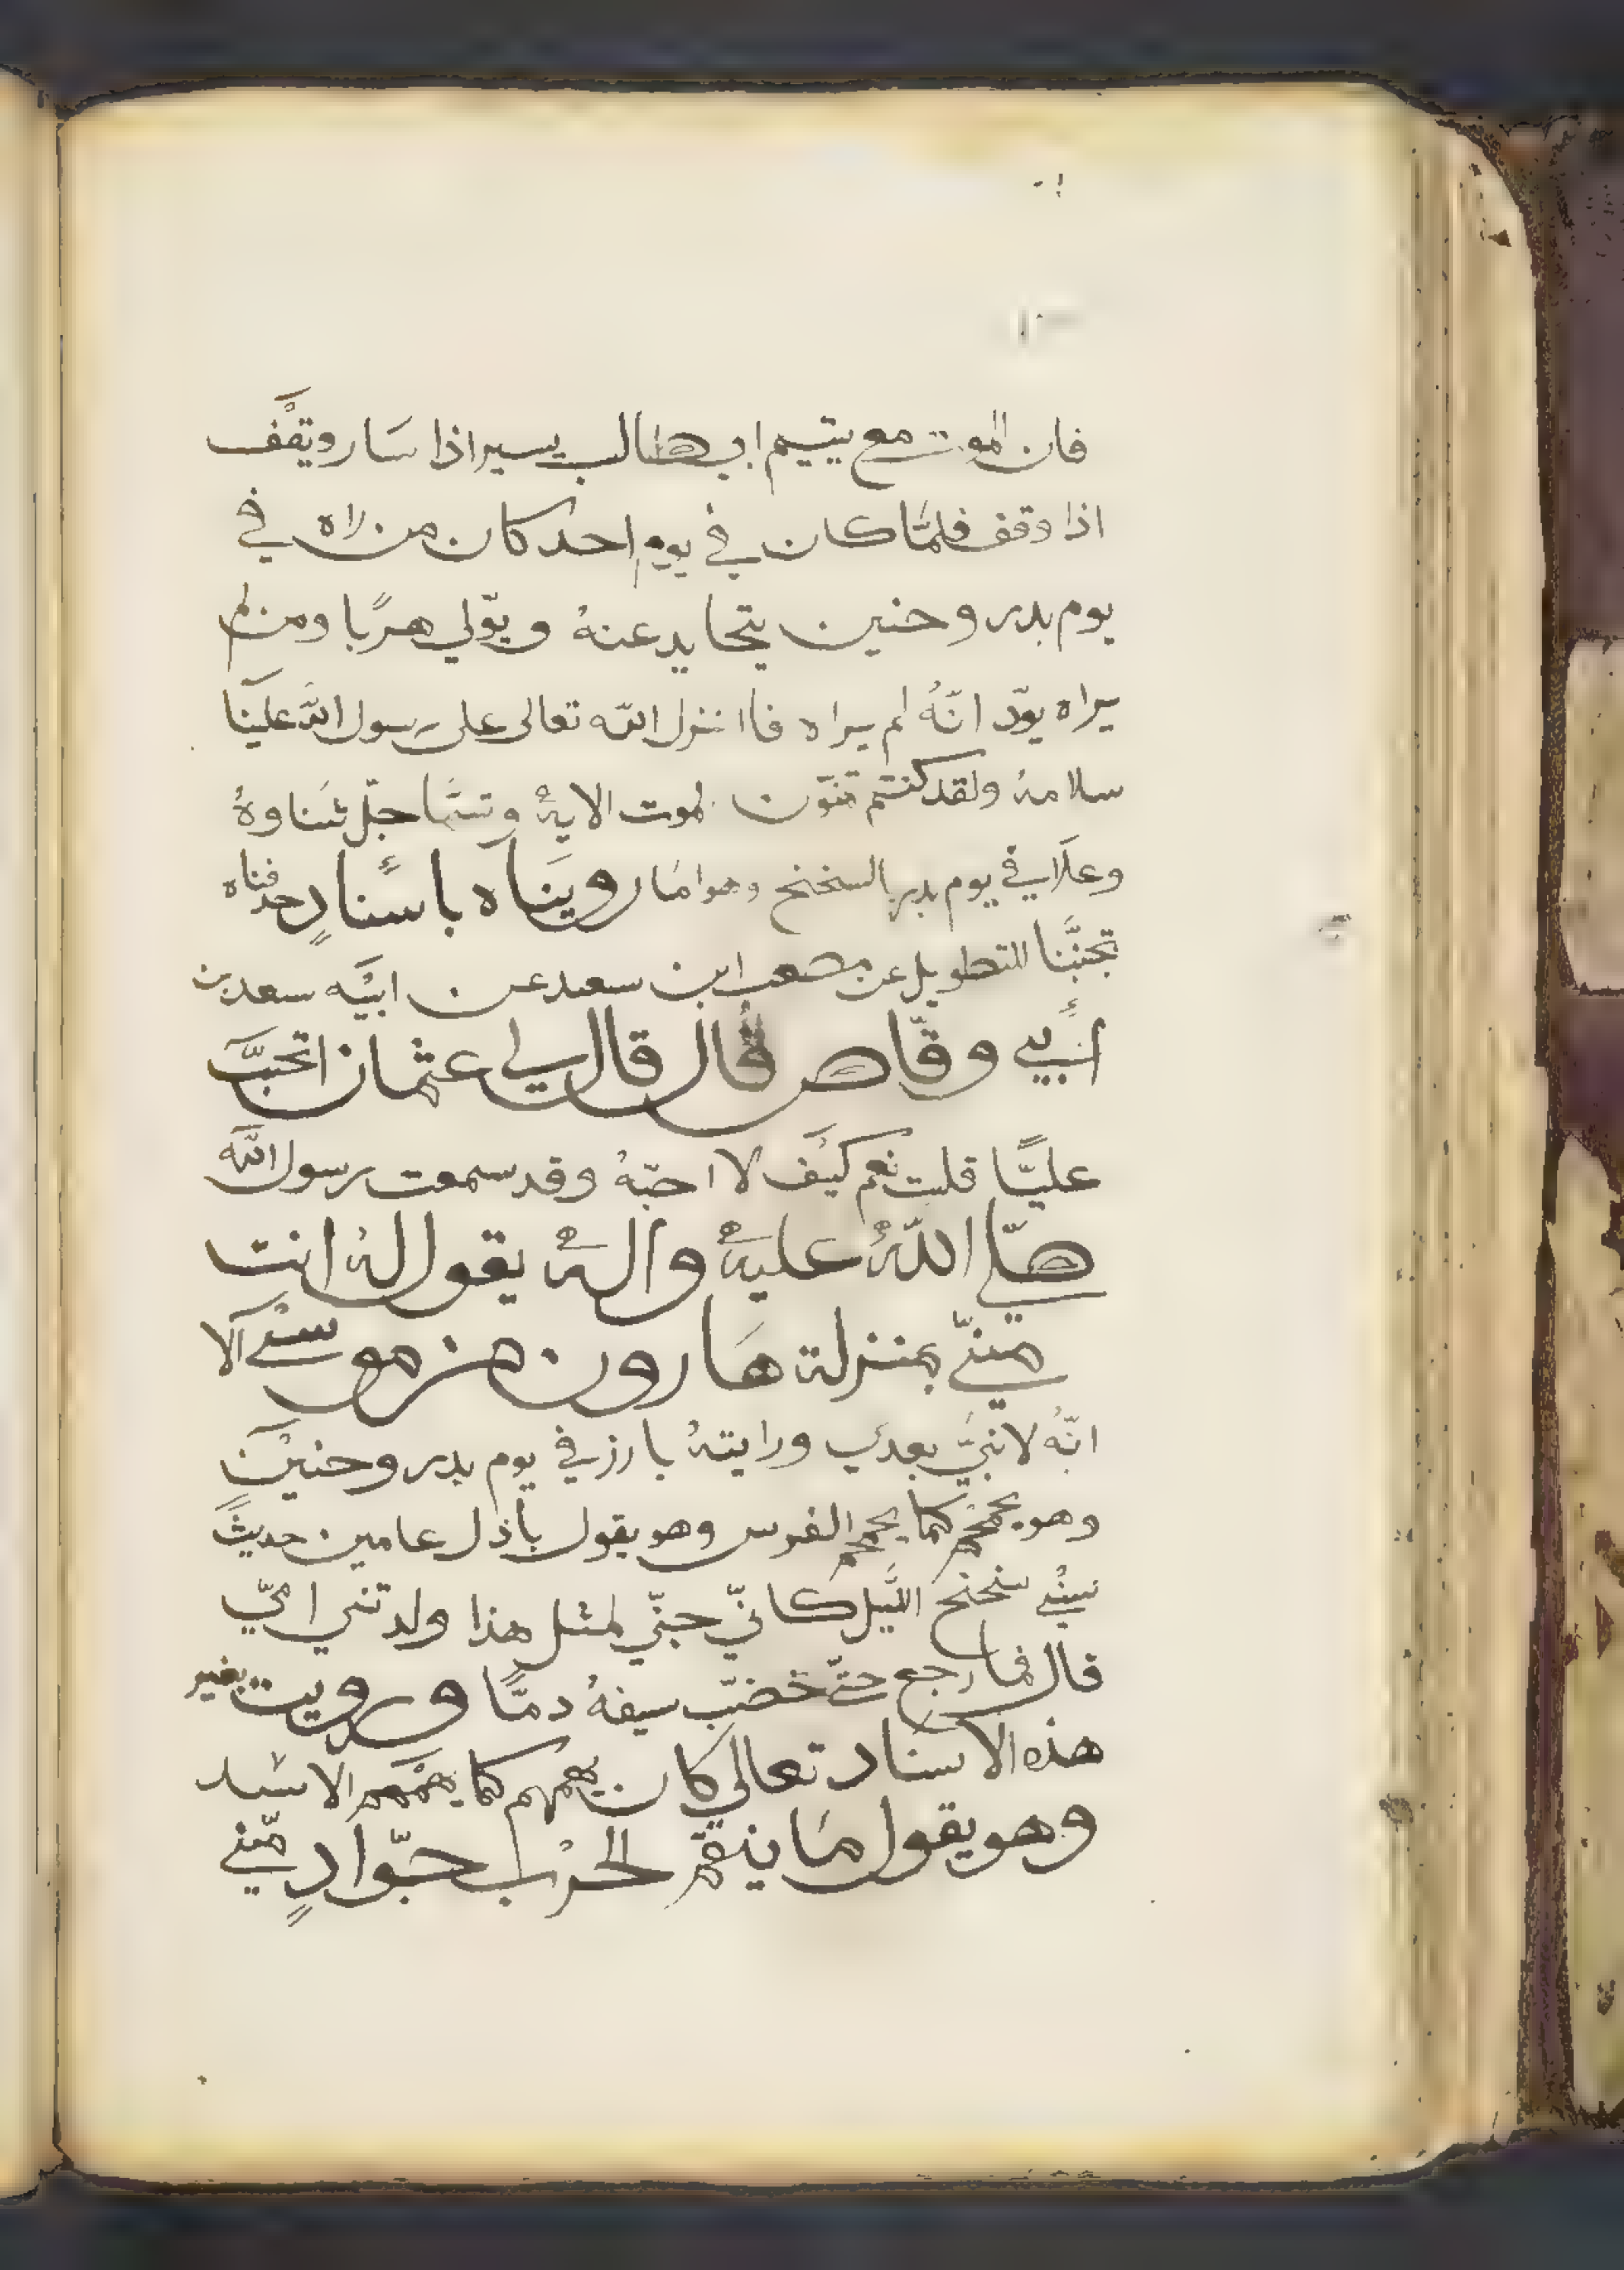 فان الموت مع يتيم ابي طالب يسير اذا سَار ويقَف
اذا وقف فلمّا كان في يوم احد كان من راه في
يوم بدر وحنين يتحايد عنهُ ويوّلي هربًا ومن لم
يراه يودّ انّهُ لم يراه فاانزل اللّه تعالى على رسول اللّه علينَا
سلامهُ ولقد كنتم تمنوّن لموت الايهْ وتسمّا جلّ ثنَاوهُ
وعلَا في يوم بدر بالسخنح وهو امَا رويَناه باسنادٍ حدفناه
تجنبًّا للتطويل عن مصعب ابن سعد عن ابيْه سعد بن
أبي وقّاص قال قال لي عثمان اتحبَّ
عليًّا قلت نعم كيَف لا احبّهُ وقد سمعت رسول اللّه
صلّى اللّهُ عليهْ والهْ يقول لهُ انت
منّي بمنزلة هَارون من موسى الا
انّهُ لا نبيَّ بعدي ورايتهُ بارز في يوم بدر وحنيْن
وهو يحمحم كما يحمحم الفرس وهو يقول باذل عامين حديثً
سنيْ سنحنح اللّيل كانيّ جنّي لمثل هذا ولدتني اميّ
قال فما رجع حتّى خضبّ سيفهُ دمًّا ورويت بغير
هذه الاسناد تعالي كان يهمهم كما يهمهم الاسَد
وهو يقول مَا ينقم الحرْب حوّادٍ منّي